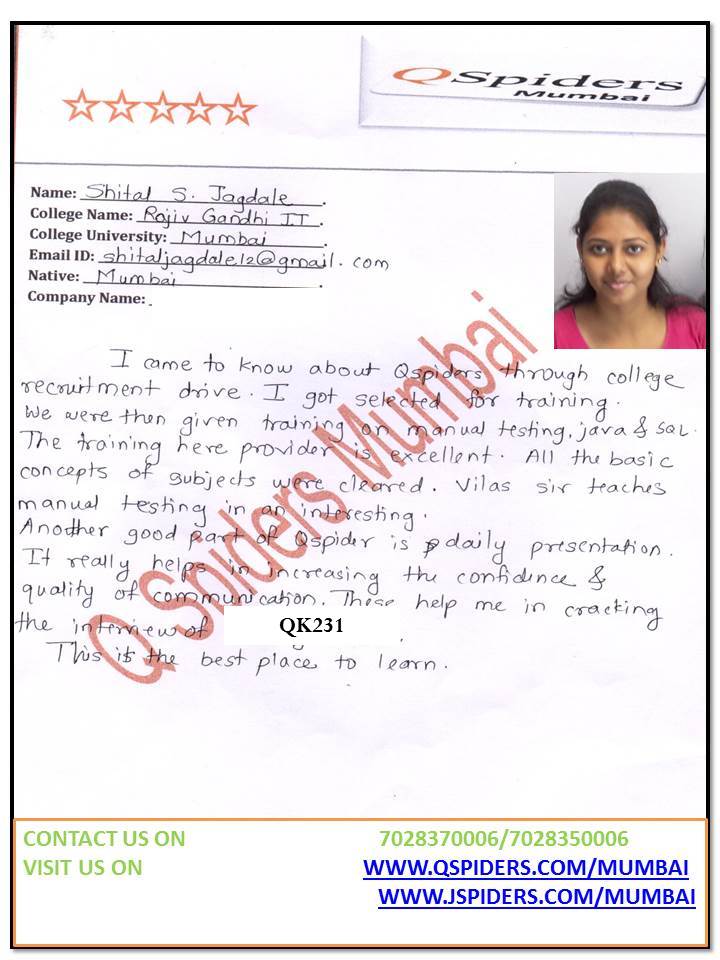 QSpiders
Mumbai
Name: Shital S. Jagdale.
College Name: Rajiv Gandhi IT.
College University: Mumbai.
Email ID: shitaljagdale12@gmail.com
Native: Mumbai.
Company Name: .
I came to know about Qspiders through college
recruitment drive. I got selected for training.
We were then given training on manual testing, java & SQL.
The training here provider is excellent. All the basic
concepts of subjects were cleared. Vilas sir teaches
manual testing in an interesting.
Another good part of Qspider is daily presentation.
It really helps in increasing the confidence &
quality of communication. These help me in cracking
the interview of QK231
This is the best place to learn.
Q Spiders Mumbai
CONTACT US ON 7028370006/7028350006
VISIT US ON WWW.QSPIDERS.COM/MUMBAI
WWW.JSPIDERS.COM/MUMBAI